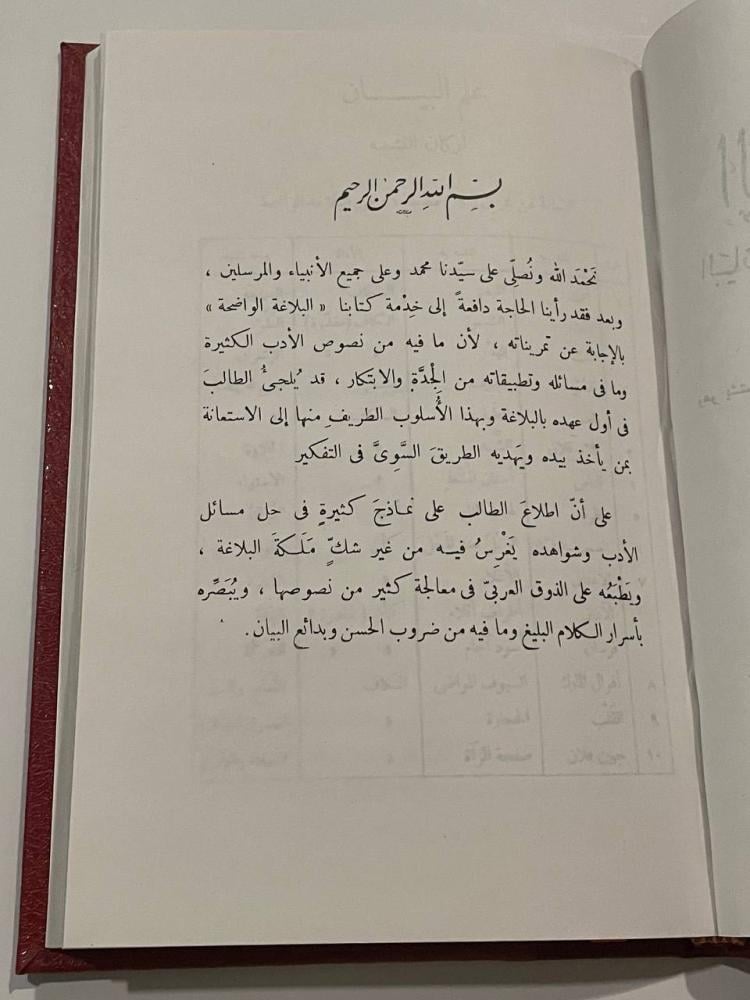 بسم الله الرحمن الرحيم
نَحْمَد الله ونُصلِّى على سيّدنا محمد وعلى جميع الأنبياء والمرسلين ،
وبعد فقد رأينا الحاجة دافعةً إلى خِدْمة كتابنا « البلاغة الواضحة »
بالإجابة عن تمريناته ، لأن ما فيه من نصوص الأدب الكثيرة
وما فى مسائله وتطبيقاته من الجِدَّةِ والابتكار ، قد يُلجئُ الطالبَ
فى أول عهده بالبلاغة وبهذا الأُسلوب الطريفِ منها إلى الاستعانة
بمن يأخذ بيده ويَهديه الطريقَ السَّوِىَّ فى التفكير
على أنّ اطلاعَ الطالب على نماذجَ كثيرةٍ فى حل مسائل
الأدب وشواهده يَغْرِسُ فيه من غير شكٍّ مَلَكةَ البلاغة ،
ويَطْبَعُه على الذوق العربىّ فى معالجة كثير من نصوصها ، ويُبَصِّره
بأسرار الكلام البليغ وما فيه من ضروب الحسن وبدائع البيان .